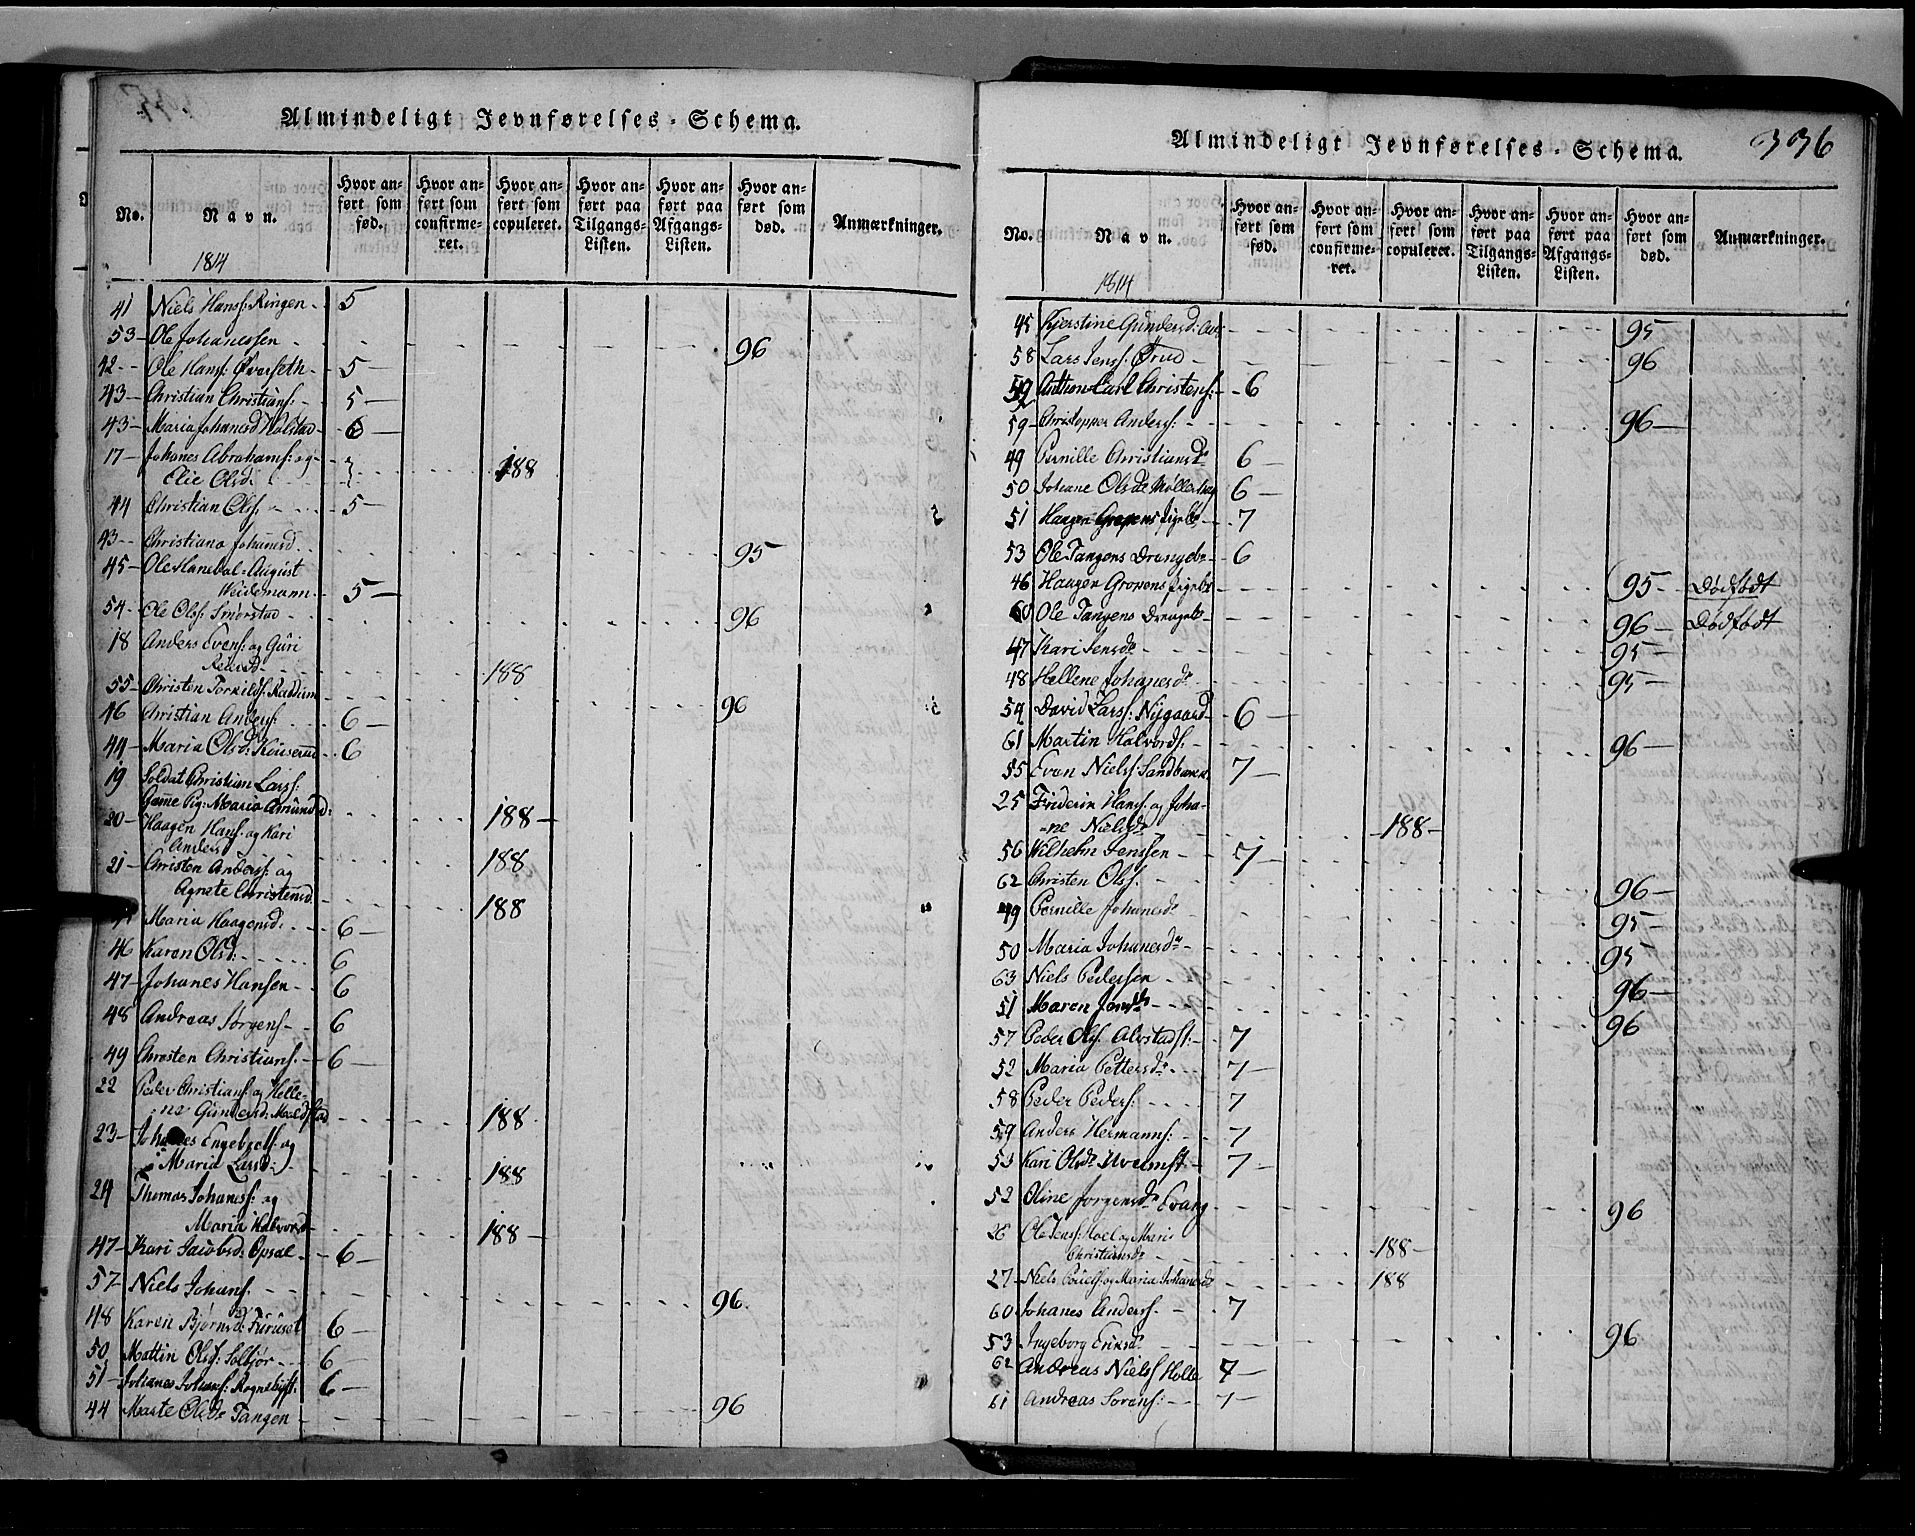 Almindeligt Jevnførelses-Schema.
No.
Navn.
Hvor anført som fød.
Hvor anført som confirmeret.
Hvor anført som copuleret.
Hvor anført paa Tilgangs-Listen.
Hvor anført paa Afgangs-Listen.
Hvor anført som død.
Anmærkninger.
1814
41 Niels Hanss: Ringen - 5
53 - Ole Johanessen - 96
42 - Ole Hanss: Øverseth - 5 -
43 - Christian Christians: - 5 -
43 - Maria Johanesd Holstad - 6 -
17 - Johanes Abrahams: og -
Elie Olsd: 188
44 Christian Olss: - 5 -
43 - Christiana Johanesd. 95
45 - Ole Haneval August
Weidemann - 5 -
54 - Ole Olss: Smørstad - 96
18 Anders Evens: og Guri
188
55 - Christen Torkilds: 96
46 Christian Anders: 6 -
44 - Maria Olsd: 6
19 Soldat Christian Larss:
Game Pig: Maria Amundsd: 188 -
20 - Haagen Hans: og Kari
Andersd 188
21 - Christen Anderss: og
Agnete Christensd. 188
Maria Haagensd: 6 -
46 Karen Olsd: 6
47 - Johanes Hansen - 6
48 Andreas Jørgens: - 6
49 Christen Christians: - 6 -
22 Peder Christians: og Helle-
ne Gundersd: 188
23 - Johanes Engebrets: og
Maria Larsd: 188
24 Thomas Johaness: og
Maria Halvorsd - 188 -
47 - Kari Jacobsd: Opsal - 6 -
57 - Niels Johans: 96.
48 Karen Bjørnsd: Furuset 6 -
50 Mattin Olss: Solbjør - 6 -
51 - Johanes Johans: 6 -
44 Marte Olsde Tangen - 96
Almindeligt Jevnførelses-Schema.
336
No.
Navn.
Hvor anført som fød.
Hvor anført som confirmeret.
Hvor anført som copuleret.
Hvor anført paa Tilgangs-Listen.
Hvor anført paa Afgangs-Listen.
Hvor anført som død.
Anmærkninger.
1814
45 Kjerstine Gundersd: 95
58 Lars Jenss: Ørud - 96
Anthon Carl Christens: - 6
59 - Christopper Anders: 96 -
49 Pernille Christiansdr 6 -
50 Johane Olsdr Møllerhag 6 -
51 Haagen Gropens Pigebr - 7
53 Ole Tangens Drengebr - 6
46 Haagen Gropens Pigebr 95 - Dødfødt
60 Ole Tangens Drengebr - 96 - Dødfødt
47 Kari Jensdr 95 -
48 Hellene Johanesdr 95 -
54 David Larss: Nygaard - 6 -
61 Martin Halvords: 96 -
55 Even Nielss: 7 -
25 Friderin Hans: og Joha-
ne Nielsdr 188 -
56 Wilhelm Jenssen - 7 -
62 Christen Olss. 96 -
49 Pernille Johanesdr 95 -
50 Maria Johanesdr - 95
63 Niels Pedersen 96 -
51 Maren 96
57 Peder Olss. Alvstad 7
52 Maria Pettersdr 7 -
58 Peder Peders: 7
59 Anders Hermanns: - 7
53 Kari Olsdr 7 -
52 Oline Jørgensdr Evang 96
26 Ole Jenss: Moe og Mari
Christiansdr 188 -
27 - Niels Pouels: og Maria Johanesdr 188
60 Johanes Anderss. 7
53 Ingeborg Eriksdr 96
62 Andreas Nielss Holle 7 -
61 Andreas Sørens: 7 -